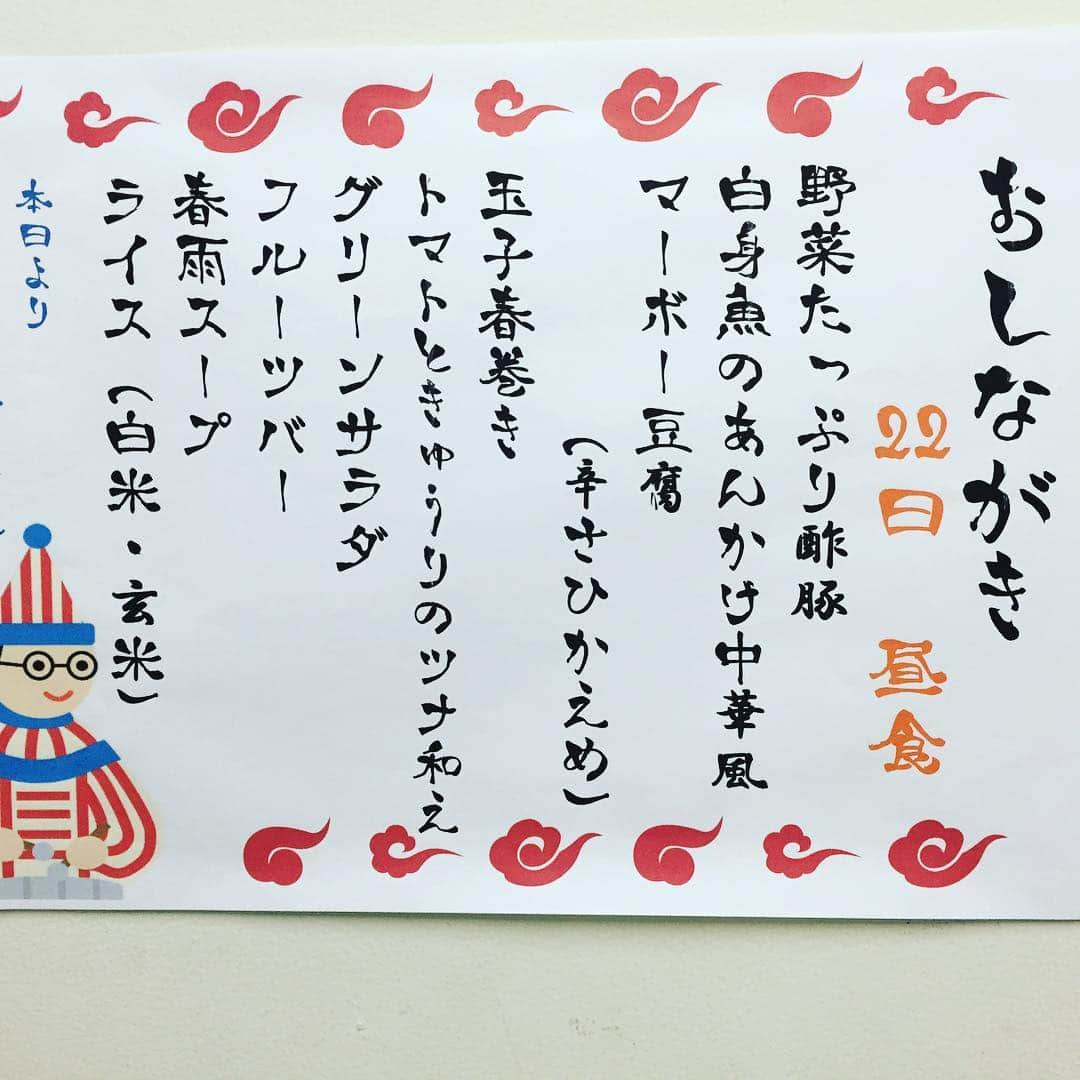 おしながき
22日 昼食
野菜たっぷり酢豚
白身魚のあんかけ中華風
マーボー豆腐
（辛さひかえめ）
玉子春巻き
トマトときゅうりのツナ和え
グリーンサラダ
フルーツバー
春雨スープ
ライス（白米・玄米）
本日より